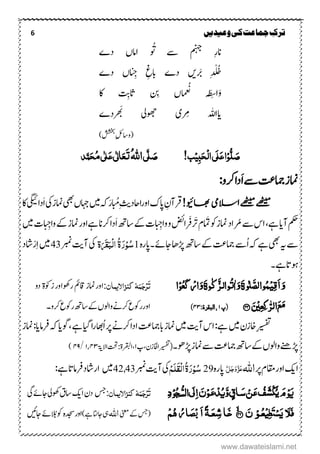 ترکِ جماعت کی وعیدیں 6
نارِ جہنم سے تُو اماں دے
خُلدِ بریں دے باغِ جناں دے
واسِطہ نعماں بن ثابت کا
یااللہ مِری جھولی بھر دے
(وسائلِ بخشش)
صَلُّوْا عَلَى الْحَبِیْب! صَلَّی اللهُ تَعَالٰی عَلٰی مُحَمَّد
نماز جماعت سے ادا کرو:
میٹھے میٹھے اسلامی بھائیو! قرآنِ پاک اور احادیثِ مُبارَکہ میں جہاں بھی نماز کی ادائیگی کا
حکم آیا ہے، اس سے مُراد نماز کو تمام تَر فرائض و واجِبات کے ساتھ ادا کرنا ہے اور نماز کے واجِبات میں
سے یہ بھی ہے کہ اُسے جماعت کے ساتھ پڑھا جائے۔ پارہ 1 سُوْرَۃُ الْبَقَرَۃ کی آیت نمبر 43 میں ارشاد
ہوتا ہے۔
وَاَقِیْمُوا الصَّلٰوةَ وَاٰتُوا الزَّكٰوةَ وَارْكَعُوْا
مَعَ الرّٰكِعِیْنَ (پ۱، البقرۃ: ۴۳)
تَرْجَمَۂ کنزُالایمان: اور نماز قائم رکھو اور زکوٰۃ دو
اور رکوع کرنے والوں کے ساتھ رکوع کرو۔
تفسیرِ خازن میں ہے: اس آیت میں نماز باجماعت ادا کرنے پر اُبھارا گیا ہے، گویا کہ فرمایا: نماز
پڑھنے والوں کے ساتھ جماعت سے نماز پڑھو۔ (تفسیر الخازن، پ۱، البقرۃ، تحت الایۃ: ۴۳، ۱/ ۴۹)
ایک اور مقام پر اللہ عَزَّوَجَلَّ پارہ 29 سُوْرَۃُ الْقَلَم کی آیت نمبر 42,43 میں ارشاد فرماتا ہے:
یَوْمَ یُكْشَفُ عَنْ سَاقٍ وَّ یُدْعَوْنَ اِلَى السُّجُوْدِ
فَلَا یَسْتَطِیْعُوْنَ خَاشِعَةً اَبْصَارُهُمْ
تَرْجَمَۂ کنزُالایمان: جس دن ایک ساق کھولی جائے گی
(جس کے معنی اللہ ہی جانتا ہے) اور سجدہ کو بلائے جائیں
www.dawateislami.net